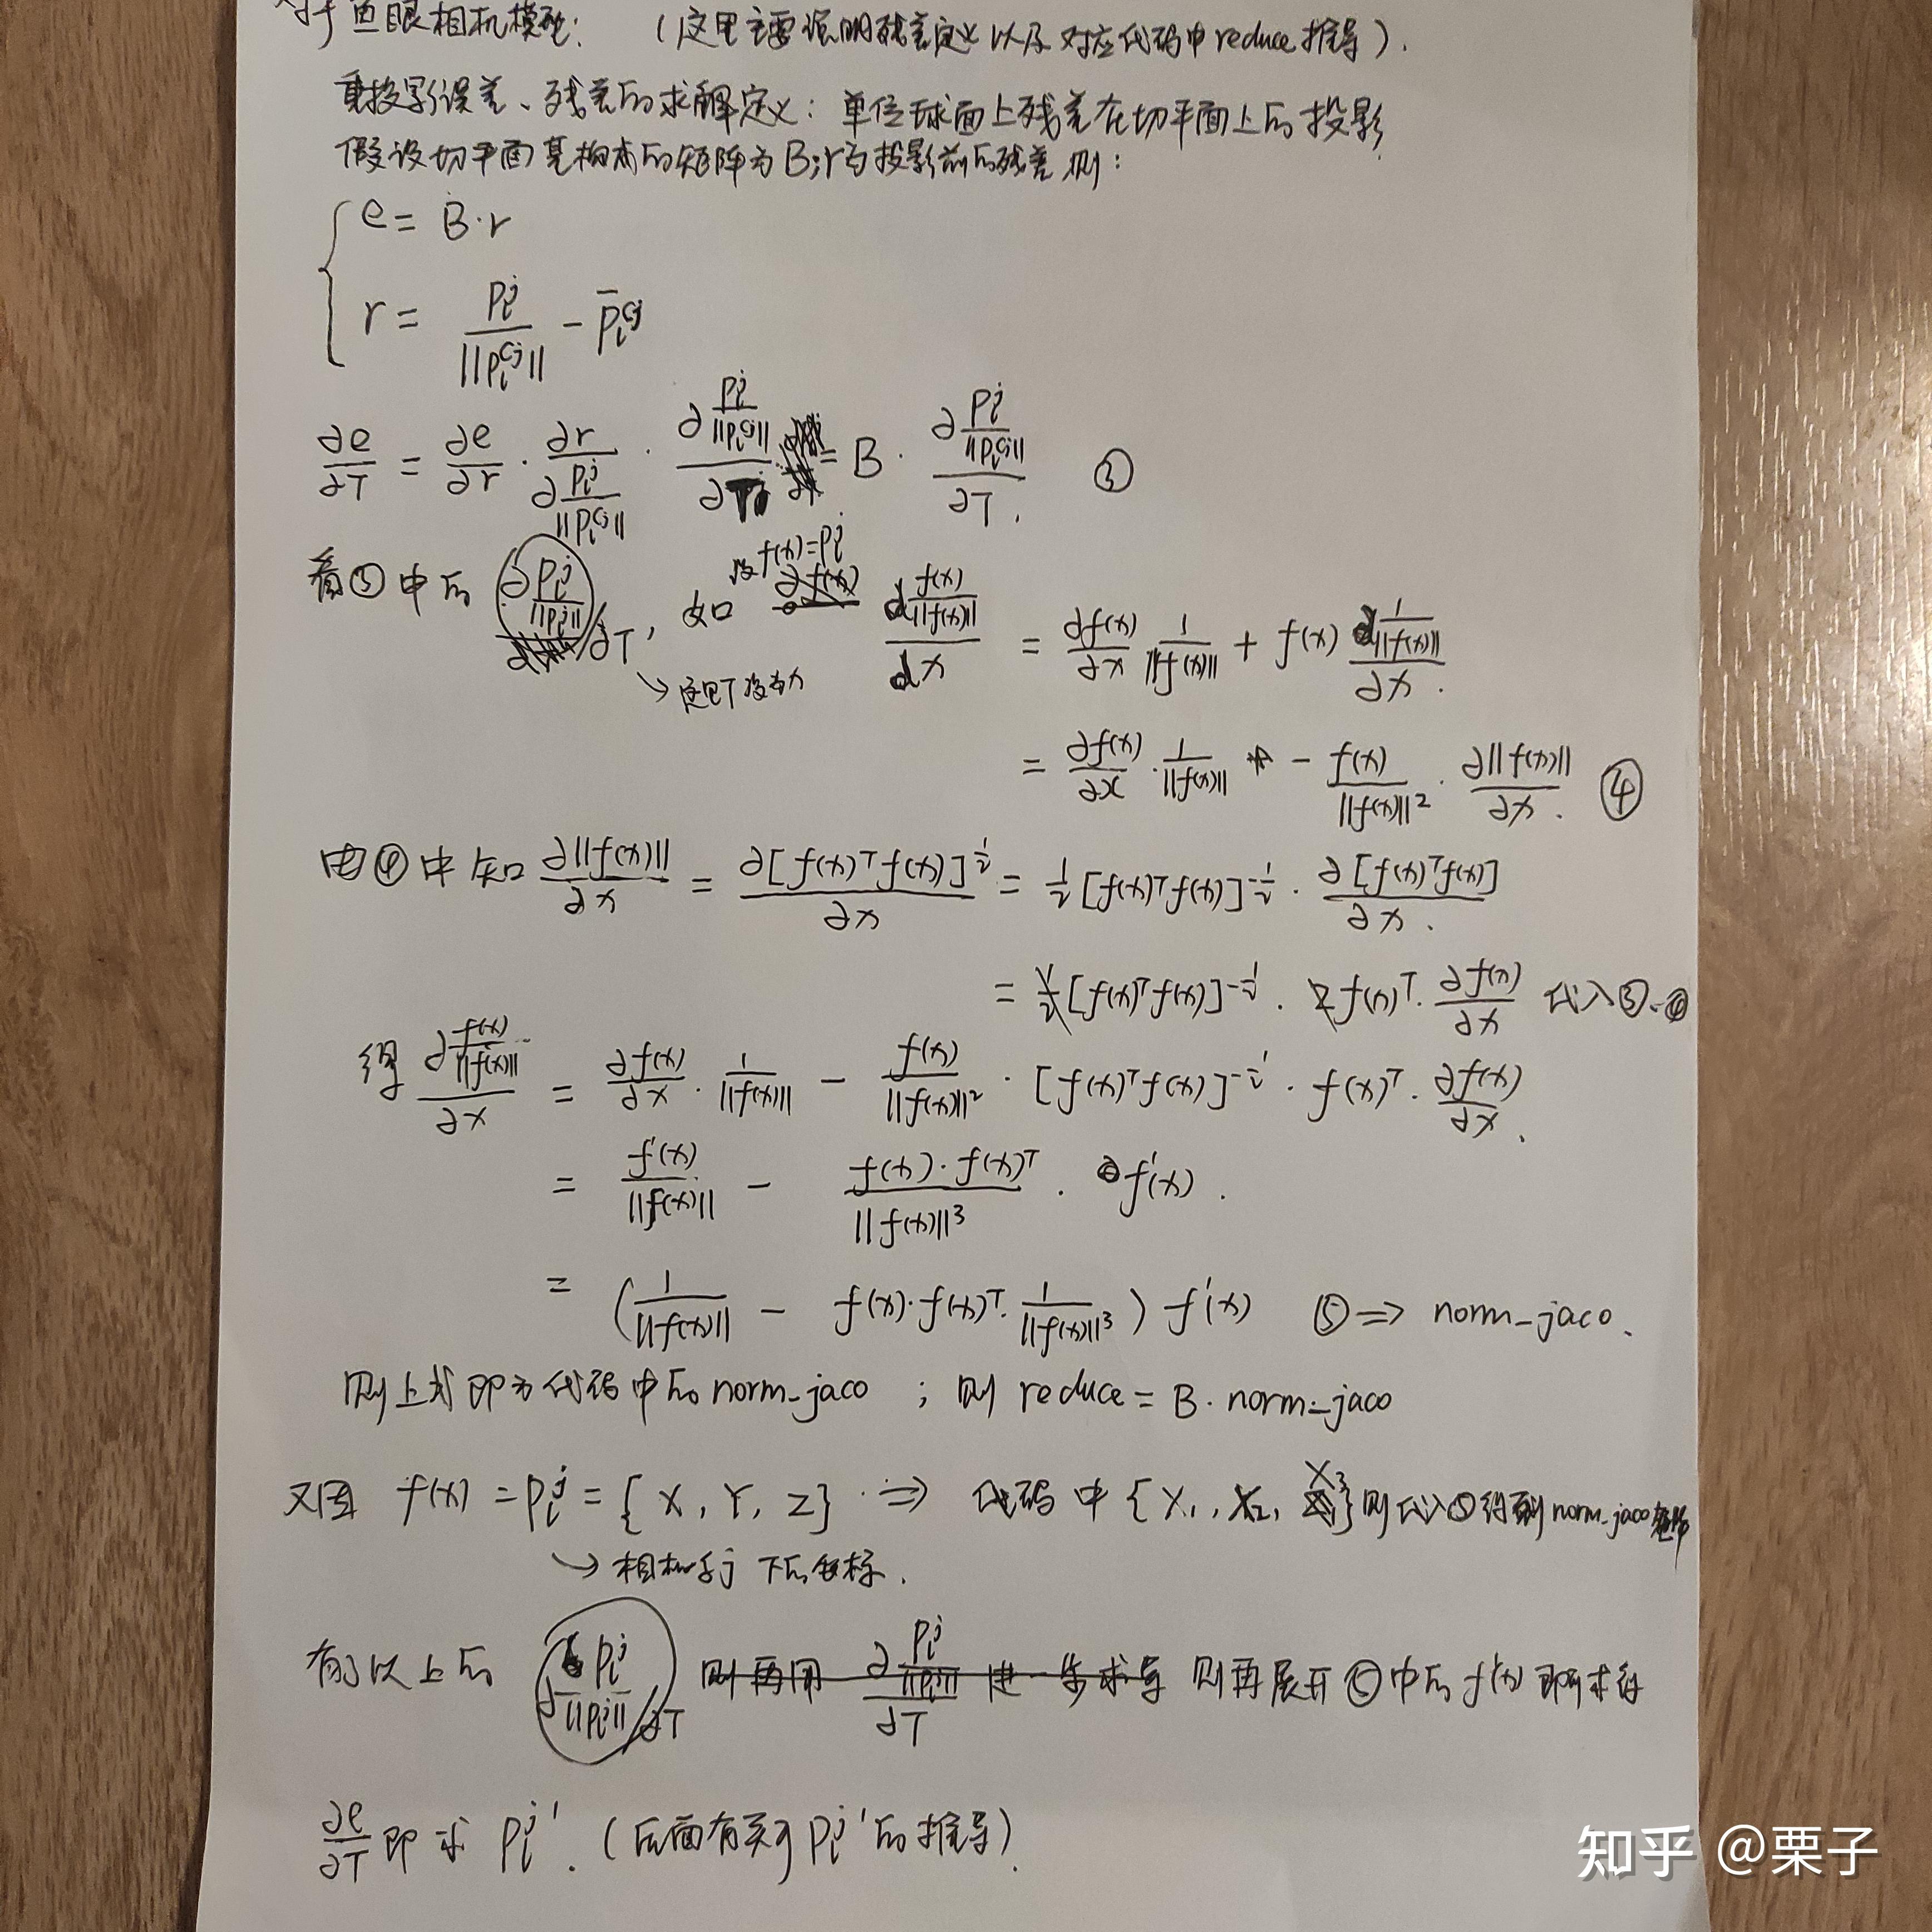 对于鱼眼相机模型: (这里主要说明残差定义以及对应代码中reduce推导).
重投影误差、残差的求解定义: 单位球面上残差在切平面上的投影
假设切平面基构成的矩阵为B; r为投影前的残差 则:
e = B·r
r = P_i^j / ||P_i^{cj}|| - \bar{P}_i^{cj}
∂e/∂T = ∂e/∂r · ∂r/∂(P_i^j/||P_i^{cj}||) · ∂(P_i^j/||P_i^{cj}||)/∂T = B · ∂(P_i^j/||P_i^{cj}||)/∂T. ③
设f(x)=P_i^j
看③中的 ∂(P_i^j/||P_i^j||)/∂T, 如 d(f(x)/||f(x)||)/dx = ∂f(x)/∂x 1/||f(x)|| + f(x) ∂(1/||f(x)||)/∂x.
→ 这里T设为x
= ∂f(x)/∂x · 1/||f(x)|| - f(x)/||f(x)||² · ∂||f(x)||/∂x. ④
由④中知 ∂||f(x)||/∂x = ∂[f(x)ᵀf(x)]^{1/2}/∂x = 1/2 [f(x)ᵀf(x)]^{-1/2} · ∂[f(x)ᵀf(x)]/∂x.
= 1/2 [f(x)ᵀf(x)]^{-1/2} · 2f(x)ᵀ · ∂f(x)/∂x 代入③、④
得 ∂(f(x)/||f(x)||)/∂x = ∂f(x)/∂x · 1/||f(x)|| - f(x)/||f(x)||² · [f(x)ᵀf(x)]^{-1/2} · f(x)ᵀ · ∂f(x)/∂x.
= f'(x)/||f(x)|| - f(x)·f(x)ᵀ/||f(x)||³ · f'(x).
= (1/||f(x)|| - f(x)·f(x)ᵀ · 1/||f(x)||³) f'(x) ⑤ => norm_jaco.
则上式即为代码中的norm_jaco ; 则 reduce = B · norm_jaco
又因 f(x) = P_i^j = {X, Y, Z} => 代码中 {X₁, X₂, X₃} 则代入⑤得到norm_jaco
→ 相机系j 下的坐标.
有了以上的 ∂(P_i^j/||P_i^j||)/∂T 则再用 ∂(P_i^j/||P_i^j||)/∂T 进一步求导 则再展开⑤中的f'(x) 即可求得
∂e/∂T 即求 P_i^j'. (后面有关于P_i^j'的推导).
知乎 @栗子